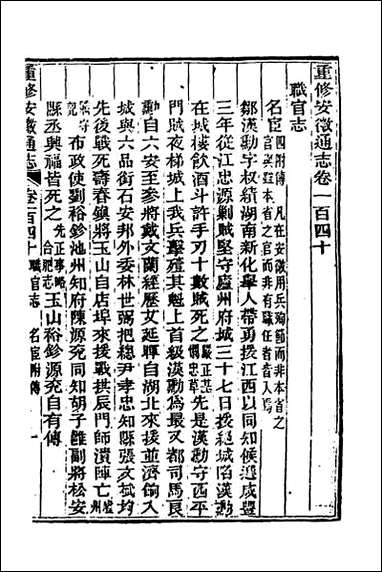 重修安徽通志卷一百四十
職官志
名宦四附傳 凡在安徽用兵殉節而非本省之官與雖本省之官而非有職任者皆入焉
鄒漢勛字叔績湖南新化舉人帶勇援江西以同知候選咸豐
三年從江忠源剿賊堅守廬州府城三十七日援絕城陷漢勛
在城樓飲酒斗許手刃十數賊死之嚴正基憫忠草先是漢勛守西平
門賊夜梯城上我兵擊殪其魁上首級漢勛爲最又都司馬良
勳自六安至參將戴文蘭經歷文廷暉自湖北來援並濟餉入
城與六品銜石安邦外委林世弼把總尹孝忠知縣張文栻均
先後戰死壽春鎮將玉山自店埠來援戰拱辰門師潰陣亡廬州
府守紀略布政使劉裕鉁池州知府陳源兖同知胡子雝副將松安
縣丞興福皆死之先正事略合肥志玉山裕鉁源兖自有傳
重修安徽通志 卷一百四十 職官志 名宦附傳 一